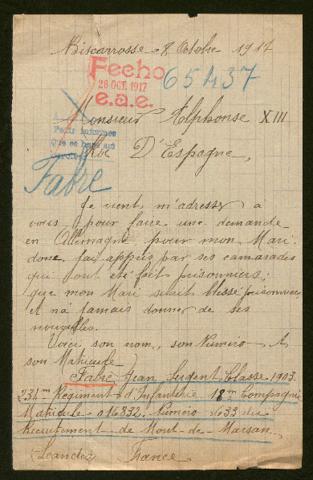 Biscarrosse 8 Octobre 1917
Fecho
28 OCT. 1917
e.a.e.
65437
Monsieur Alphonse XIII
Roi D'Espagne,
Fabre
Je vient m'adresser a
vous pour faire une demande
en Allemagne pour mon Mari
donc fait appris par ses camarades
qui ont été fait prisonniers;
que mon Mari serait blessé prisonnier
et na jamais donner de ses
nouvelles.
Voici son nom, son Numéro et
son Matricule
Fabre Jean Sergent, Classe 1903.
234me Régiment d'Infanterie 18me Compagnie
Matricule 016832. Numéro 633 du
Recrutement de Mont-de-Marsan
(Landes) France